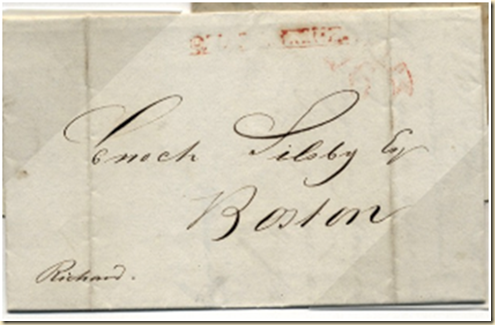 Enoch Silsby Esq
Boston
Richard.